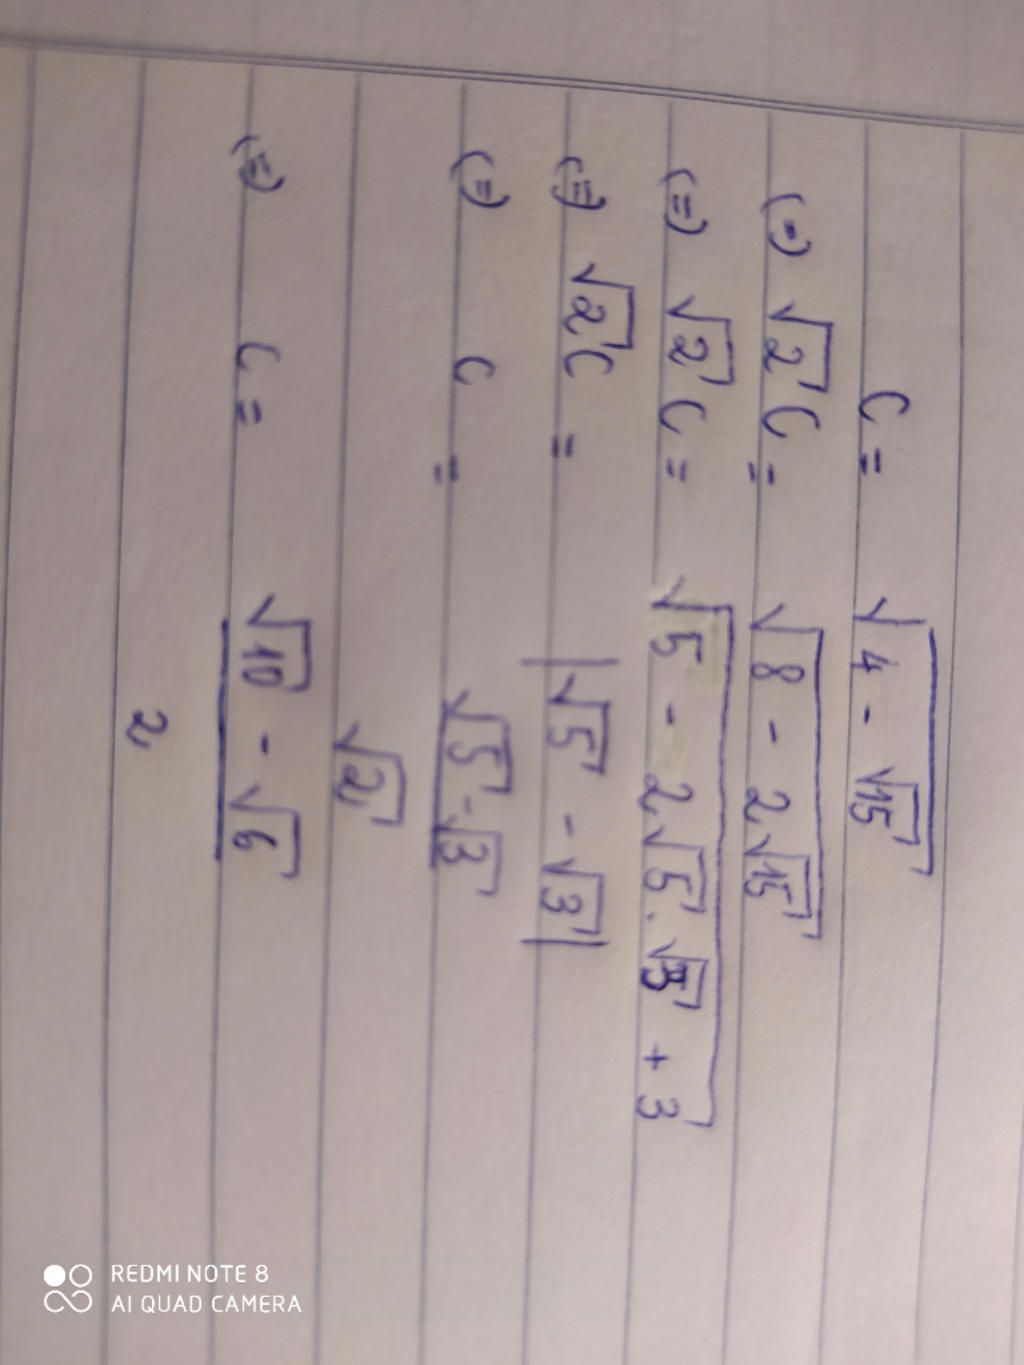 C = √(4 - √15)
(=) √2 C = √(8 - 2√15)
(=) √2 C = √(5 - 2√5 . √3 + 3)
(=) √2 C = |√5 - √3|
(=) C = (√5 - √3)/√2
(=) C = (√10 - √6)/2
REDMI NOTE 8
AI QUAD CAMERA